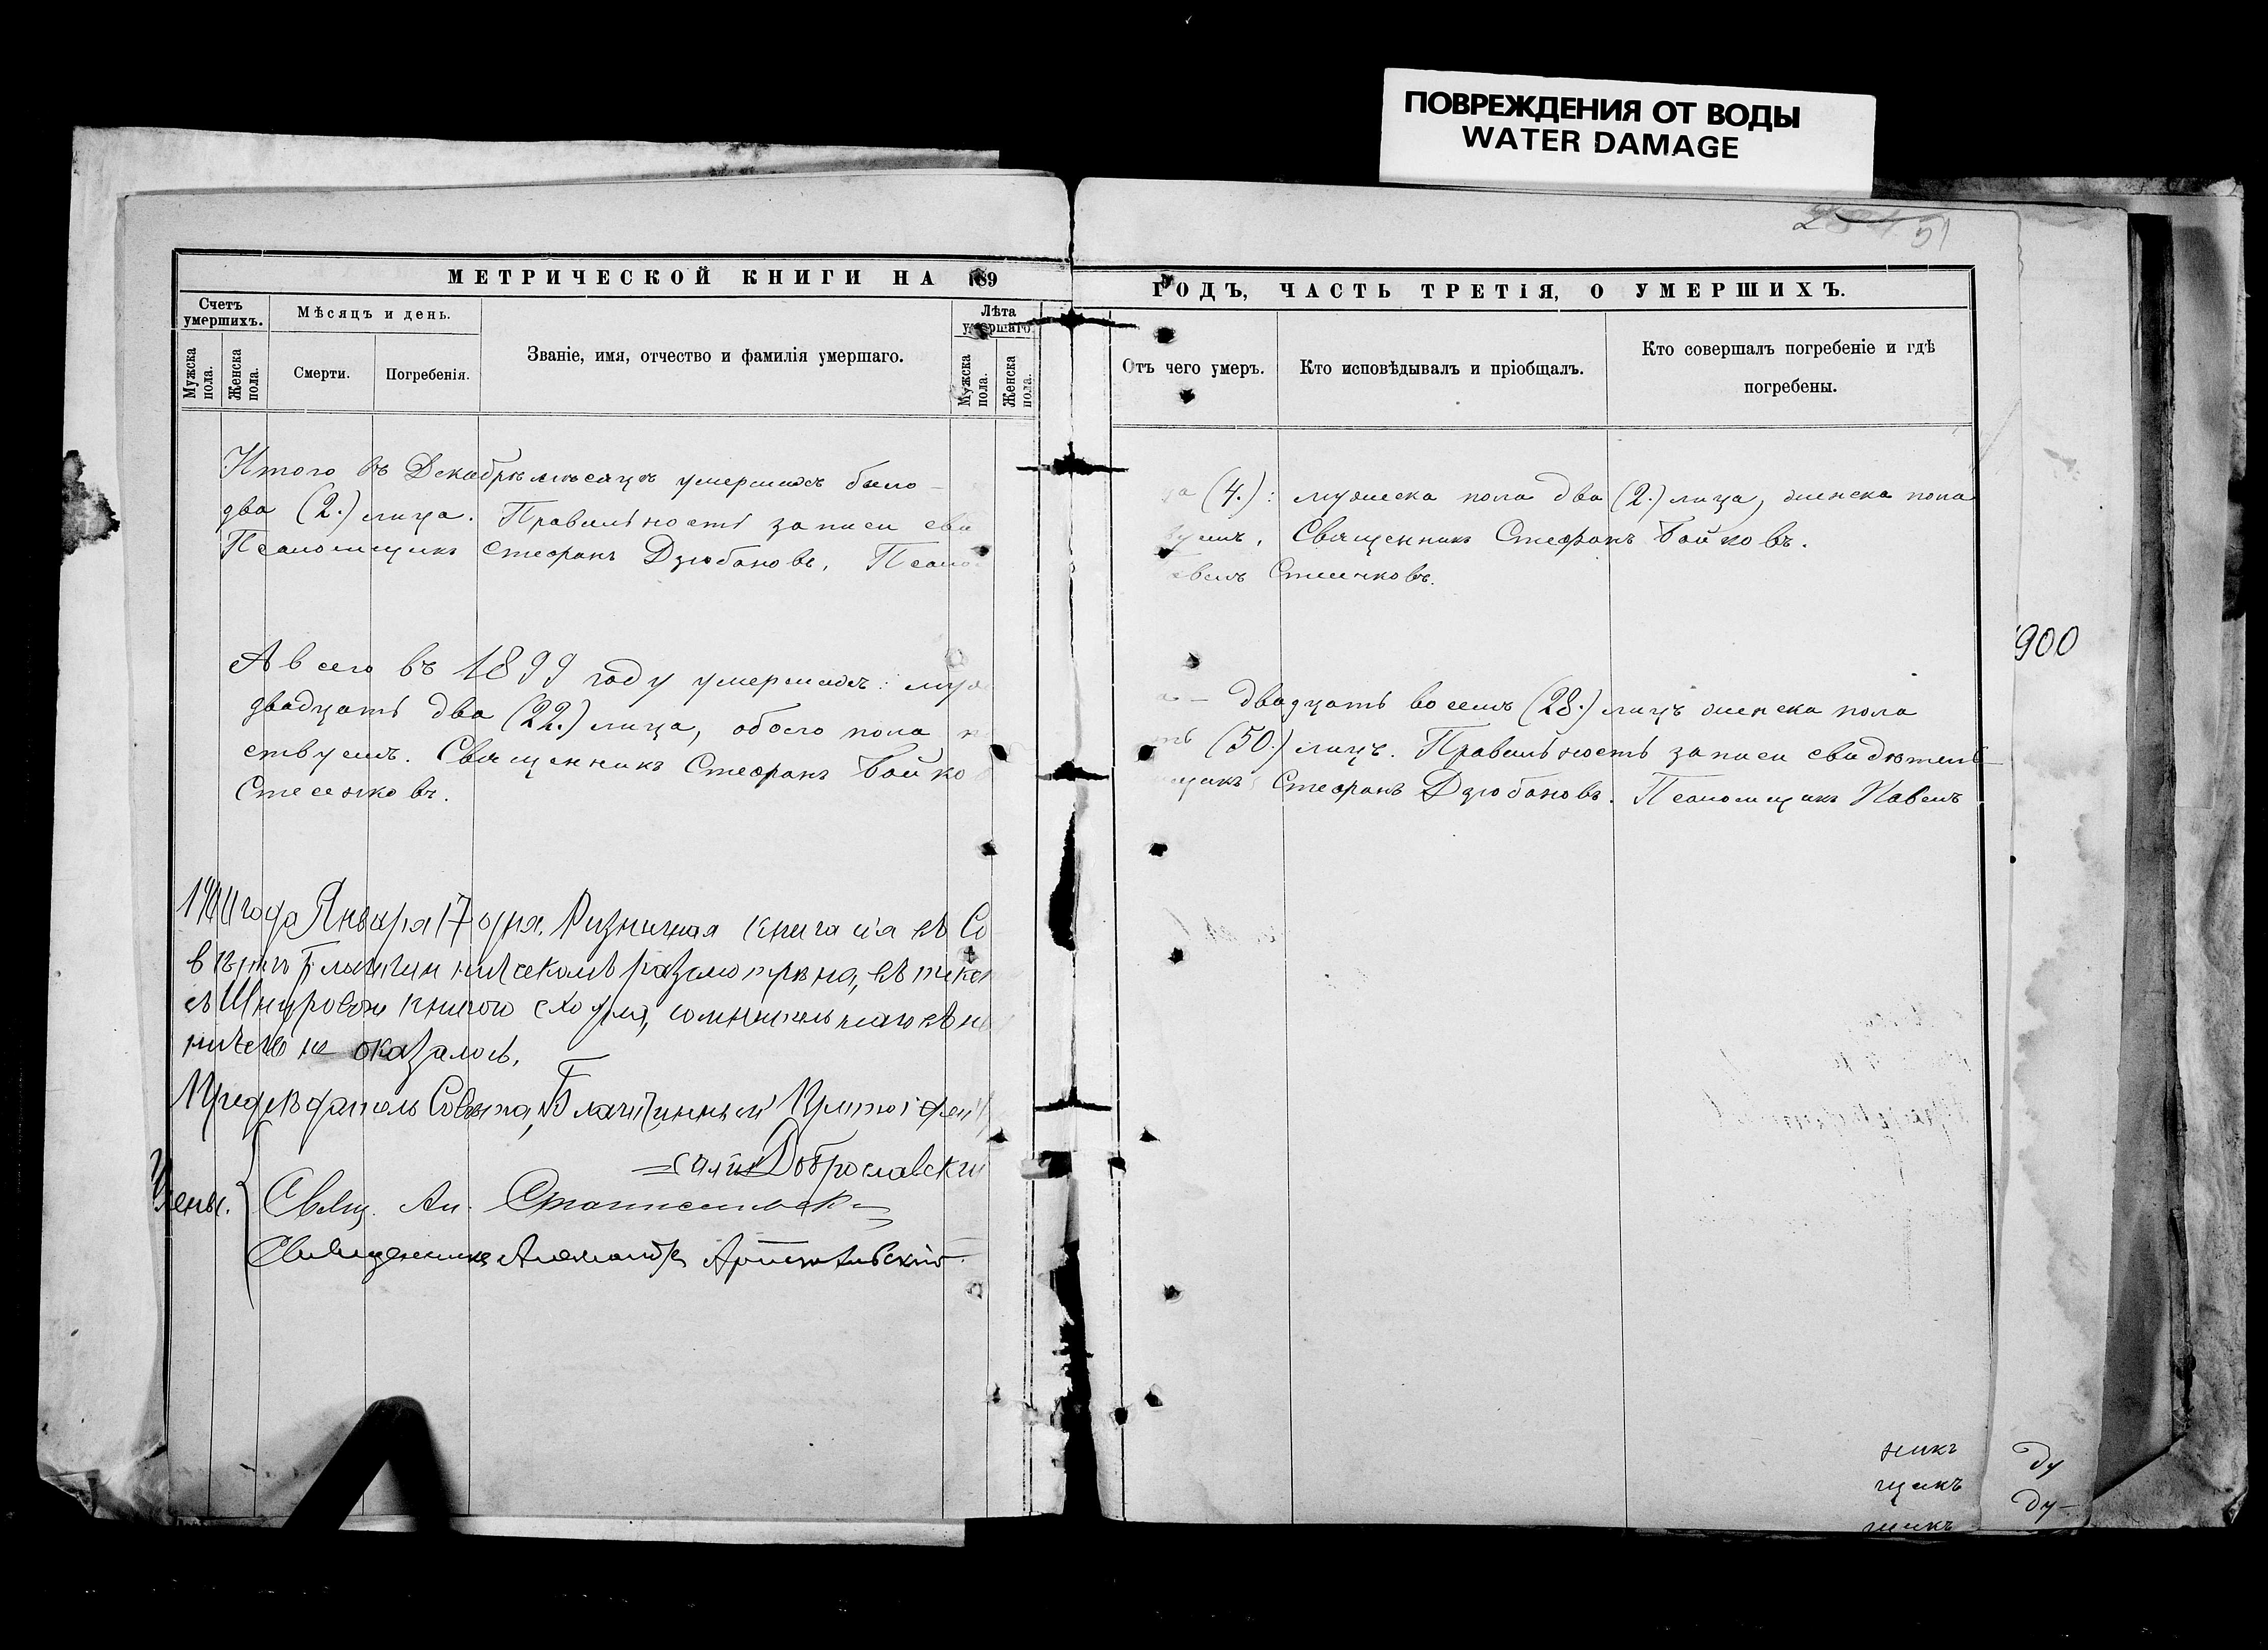 ПОВРЕЖДЕНИЯ ОТ ВОДЫ
WATER DAMAGE
МЕТРИЧЕСКОЙ КНИГИ НА 189
Счетъ умершихъ.
Мужска пола.
Женска пола.
Мѣсяцъ и день.
Смерти.
Погребенія.
Званіе, имя, отчество и фамилія умершаго.
Лѣта умершаго
Мужска пола.
Женска пола.
Итого въ Декабрѣ мѣсяцѣ умершихъ было
два (2.) лица. Правильность записи сви
Псаломщикъ Стефанъ Дзюбановъ. Псало
А всего въ 1899 году умершихъ: муж
двадцать два (22.) лица, обоего пола
ствуемъ. Священникъ Стефанъ Бойко
Стесечковъ.
года Января 17 дня. книга сія въ Со
разсмотрѣна,
съ Шнуровою книгою сходна, сомнительнаго въ не
ничего не оказалось.
Предсѣдатель Совѣта, Благочинный Протоіерей
Доброславскій
Члены. Свящ. Ал.
Священникъ Александръ
ГОДЪ, ЧАСТЬ ТРЕТІЯ, О УМЕРШИХЪ.
Отъ чего умеръ.
Кто исповѣдывалъ и пріобщалъ.
Кто совершалъ погребеніе и гдѣ погребены.
(4.): мужеска пола два (2.) лица, женска пола
Священникъ Стефанъ Бойковъ.
двадцать восемь (28.) лицъ женска пола
(50.) лицъ. Правильность записи свидѣтель
щикъ Стефанъ Дзюбановъ. Псаломщикъ Павелъ
900
никъ
щикъ
щикъ
ду
ду-